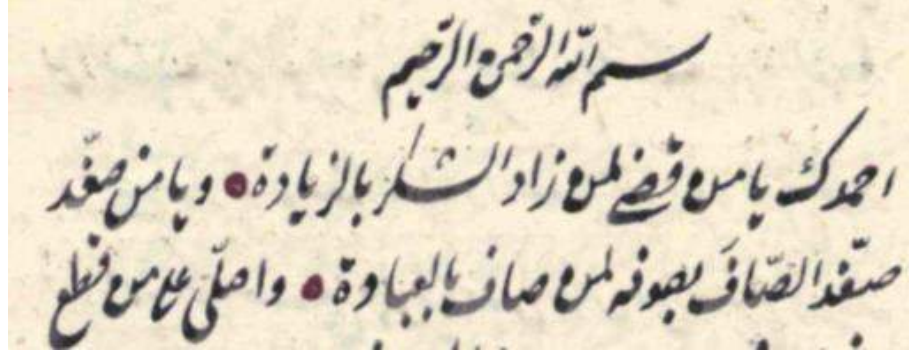 بسم الله الرحمن الرحيم
احمدك يا من قضى لمن زاد الشكر بالزيادة • ويا من صفّد
الصّاف بصونه لمن صاف بالعبادة • واصلّى على من قطع